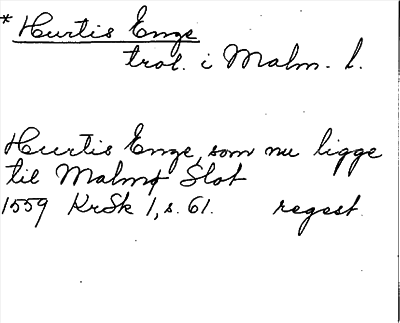 * Hurtis Enge
trol. i Malm. l.
Hurtis Enge, som nu ligge
til Malmø Slot
1559 KrSk 1, s. 61. regest.